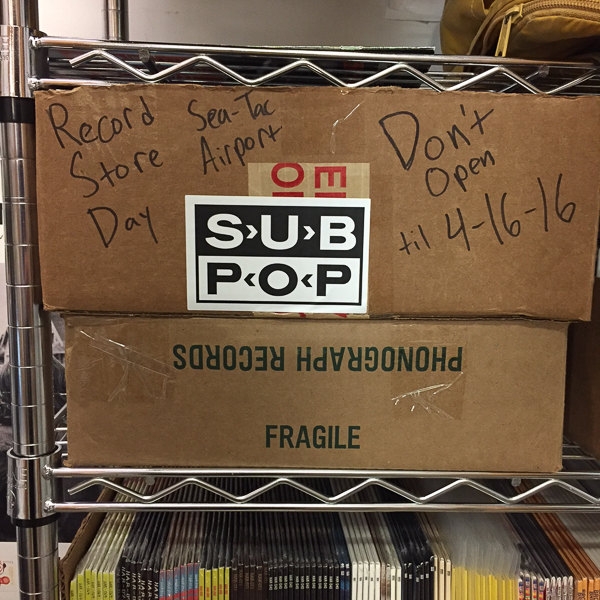 Record
Store
Day
Sea-Tac
Airport
Don't
Open
til 4-16-16
S›U›B
P‹O‹P
PHONOGRAPH RECORDS
FRAGILE